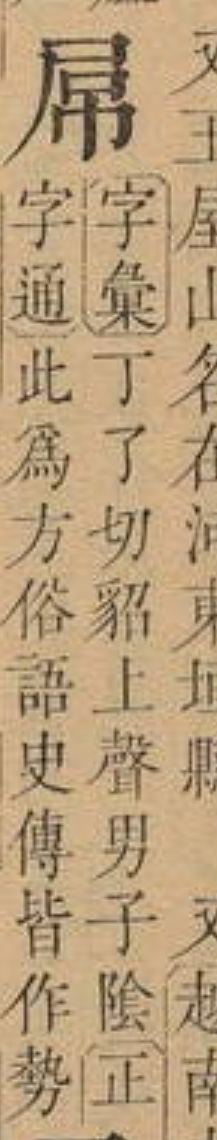 又王屋山名在河東垣縣 又越南
屌
字彙丁了切貂上聲男子陰正
字通此爲方俗語史傳皆作勢